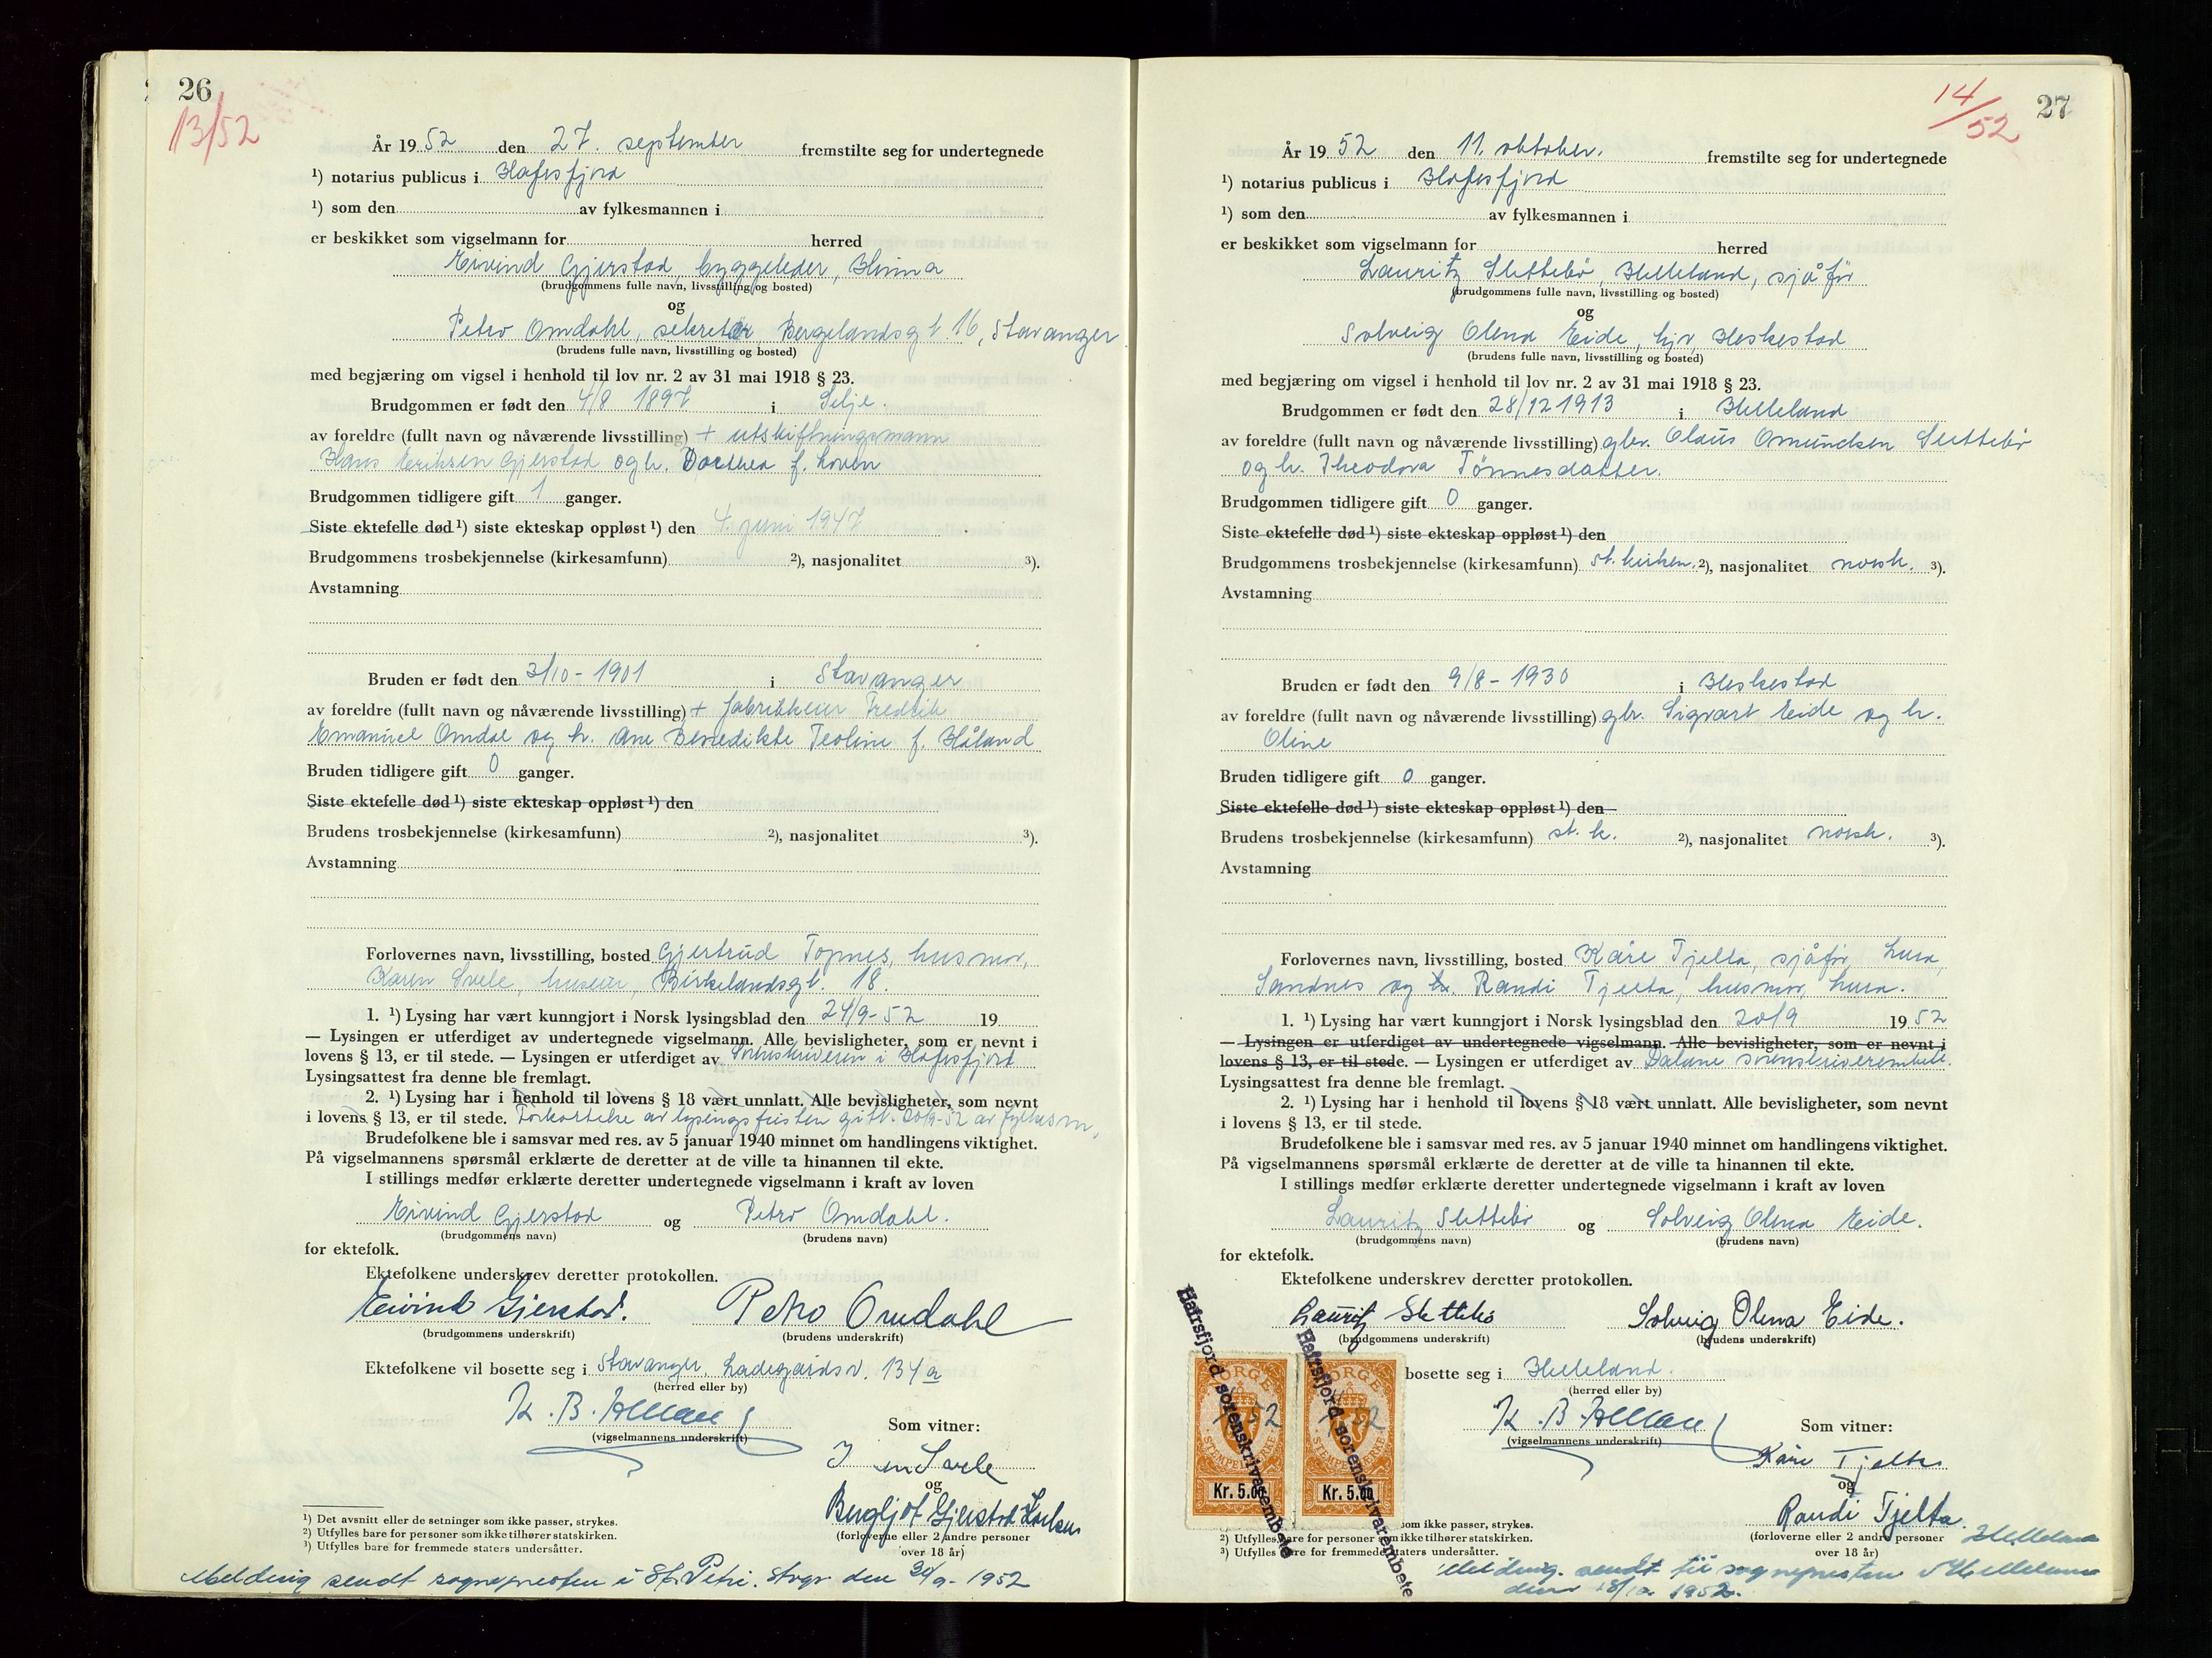 26
13/52
År 1952 den 27. september fremstilte seg for undertegnede
¹) notarius publicus i Hafrsfjord
¹) som den av fylkesmannen i
er beskikket som vigselmann for herred
Eivind Gjerstad, byggeleder, Hinna
(brudgommens fulle navn, livsstilling og bosted)
og
Petro Omdahl, sekretær, Bergelandsgt. 16, Stavanger
(brudens fulle navn, livsstilling og bosted)
med begjæring om vigsel i henhold til lov nr. 2 av 31 mai 1918 § 23.
Brudgommen er født den 4/8 1897 i Selje.
av foreldre (fullt navn og nåværende livsstilling) + utskiftningsmann
Hans Eriksen Gjerstad og h. Dorthea f. Hoven
Brudgommen tidligere gift 1 ganger.
Siste ektefelle død ¹) siste ekteskap oppløst ¹) den 4. juni 1947
Brudgommens trosbekjennelse (kirkesamfunn) ²), nasjonalitet ³).
Avstamning
Bruden er født den 3/10 - 1901 i Stavanger
av foreldre (fullt navn og nåværende livsstilling) + fabrikkeier Fredrik
Emanuel Omdal og h. Ane Benedikte Teoline f. Håland
Bruden tidligere gift 0 ganger.
Siste ektefelle død ¹) siste ekteskap oppløst ¹) den
Brudens trosbekjennelse (kirkesamfunn) ²), nasjonalitet ³).
Avstamning
Forlovernes navn, livsstilling, bosted Gjertrud Topnes, husmor,
Karen Svele, huseier, Birkelandsgt. 18.
1. ¹) Lysing har vært kunngjort i Norsk lysingsblad den 24/9-52 19
— Lysingen er utferdiget av undertegnede vigselmann. Alle bevisligheter, som er nevnt i
lovens § 13, er til stede. — Lysingen er utferdiget av Sorenskriveren i Hafrsfjord
Lysingsattest fra denne ble fremlagt.
2. ¹) Lysing har i henhold til lovens § 18 vært unnlatt. Alle bevisligheter, som nevnt
i lovens § 13, er til stede. Forkortelse av lysingsfristen gitt 20/9-52 av fylkesm.
Brudefolkene ble i samsvar med res. av 5 januar 1940 minnet om handlingens viktighet.
På vigselmannens spørsmål erklærte de deretter at de ville ta hinannen til ekte.
I stillings medfør erklærte deretter undertegnede vigselmann i kraft av loven
Eivind Gjerstad og Petro Omdahl.
(brudgommens navn) (brudens navn)
for ektefolk.
Ektefolkene underskrev deretter protokollen.
Eivind Gjerstad. Petro Omdahl
(brudgommens underskrift) (brudens underskrift)
Ektefolkene vil bosette seg i Stavanger, Ladegårdsv. 134 a
(herred eller by)
K. B.
(vigselmannens underskrift)
Som vitner:
Svele
og
Bergljot Gjerstad
(forloverne eller 2 andre personer
over 18 år)
¹) Det avsnitt eller de setninger som ikke passer, strykes.
²) Utfylles bare for personer som ikke tilhører statskirken.
³) Utfylles bare for fremmede staters undersåtter.
Melding sendt sognepresten i St. Petri. Stvgr den 30/9-1952
27
14/52
År 1952 den 11. oktober. fremstilte seg for undertegnede
¹) notarius publicus i Hafrsfjord
¹) som den av fylkesmannen i
er beskikket som vigselmann for herred
Lauritz Slettebø, Helleland, sjåfør
(brudgommens fulle navn, livsstilling og bosted)
og
Solveig Olena Eide, hjv, Heskestad
(brudens fulle navn, livsstilling og bosted)
med begjæring om vigsel i henhold til lov nr. 2 av 31 mai 1918 § 23.
Brudgommen er født den 28/12 1913 i Helleland
av foreldre (fullt navn og nåværende livsstilling) gbr. Olaus Omundsen Slettebø
og h. Theodora Tönnesdatter.
Brudgommen tidligere gift 0 ganger.
Siste ektefelle død ¹) siste ekteskap oppløst ¹) den
Brudgommens trosbekjennelse (kirkesamfunn) st. kirken. ²), nasjonalitet norsk. ³).
Avstamning
Bruden er født den 9/8 - 1930 i Heskestad
av foreldre (fullt navn og nåværende livsstilling) gbr. Sigvart Eide og h.
Oline
Bruden tidligere gift 0 ganger.
Siste ektefelle død ¹) siste ekteskap oppløst ¹) den
Brudens trosbekjennelse (kirkesamfunn) st. k. ²), nasjonalitet norsk. ³).
Avstamning
Forlovernes navn, livsstilling, bosted Kåre Tjelta, sjåfør, Lura,
Sandnes og h. Randi Tjelta, husmor, Lura.
1. ¹) Lysing har vært kunngjort i Norsk lysingsblad den 20/9 1952
— Lysingen er utferdiget av undertegnede vigselmann. Alle bevisligheter, som er nevnt i
lovens § 13, er til stede. — Lysingen er utferdiget av Dalane sorenskriverembete.
Lysingsattest fra denne ble fremlagt.
2. ¹) Lysing har i henhold til lovens § 18 vært unnlatt. Alle bevisligheter, som nevnt
i lovens § 13, er til stede.
Brudefolkene ble i samsvar med res. av 5 januar 1940 minnet om handlingens viktighet.
På vigselmannens spørsmål erklærte de deretter at de ville ta hinannen til ekte.
I stillings medfør erklærte deretter undertegnede vigselmann i kraft av loven
Lauritz Slettebø og Solveig Olena Eide.
(brudgommens navn) (brudens navn)
for ektefolk.
Ektefolkene underskrev deretter protokollen.
Lauritz Slettebø Solveig Olena Eide.
(brudgommens underskrift) (brudens underskrift)
bosette seg i Helleland.
(herred eller by)
K. B.
(vigselmannens underskrift)
Som vitner:
Kåre Tjelta
og
Randi Tjelta.
(forloverne eller 2 andre personer
over 18 år)
NORGE NORGE
52
STEMPELMERKE STEMPELMERKE
Kr. 5.00 Kr. 5.00
Hafrsfjord sorenskriverembete
Hafrsfjord sorenskriverembete
om ikke passer, strykes.
²) Utfylles bare for personer som ikke tilhører statskirken.
³) Utfylles bare for fremmede staters undersåtter.
Melding sendt til sognepresten i Helleland
den 1952.